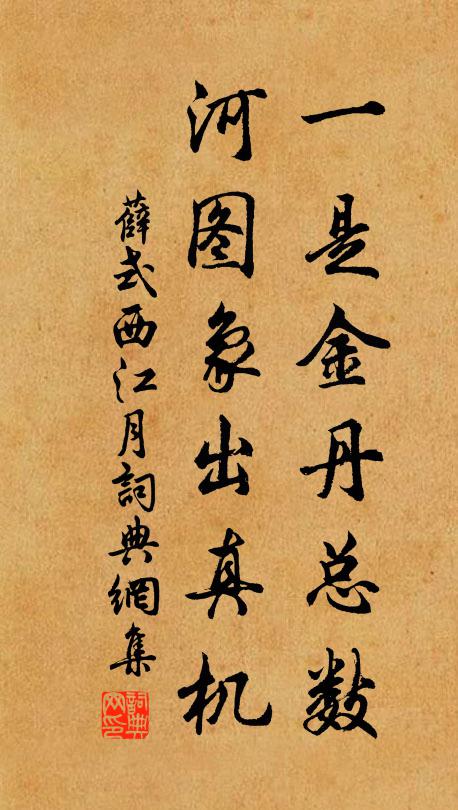 一是金丹总数
河图象出真机
薛式西江月詞典網集
詞典网印